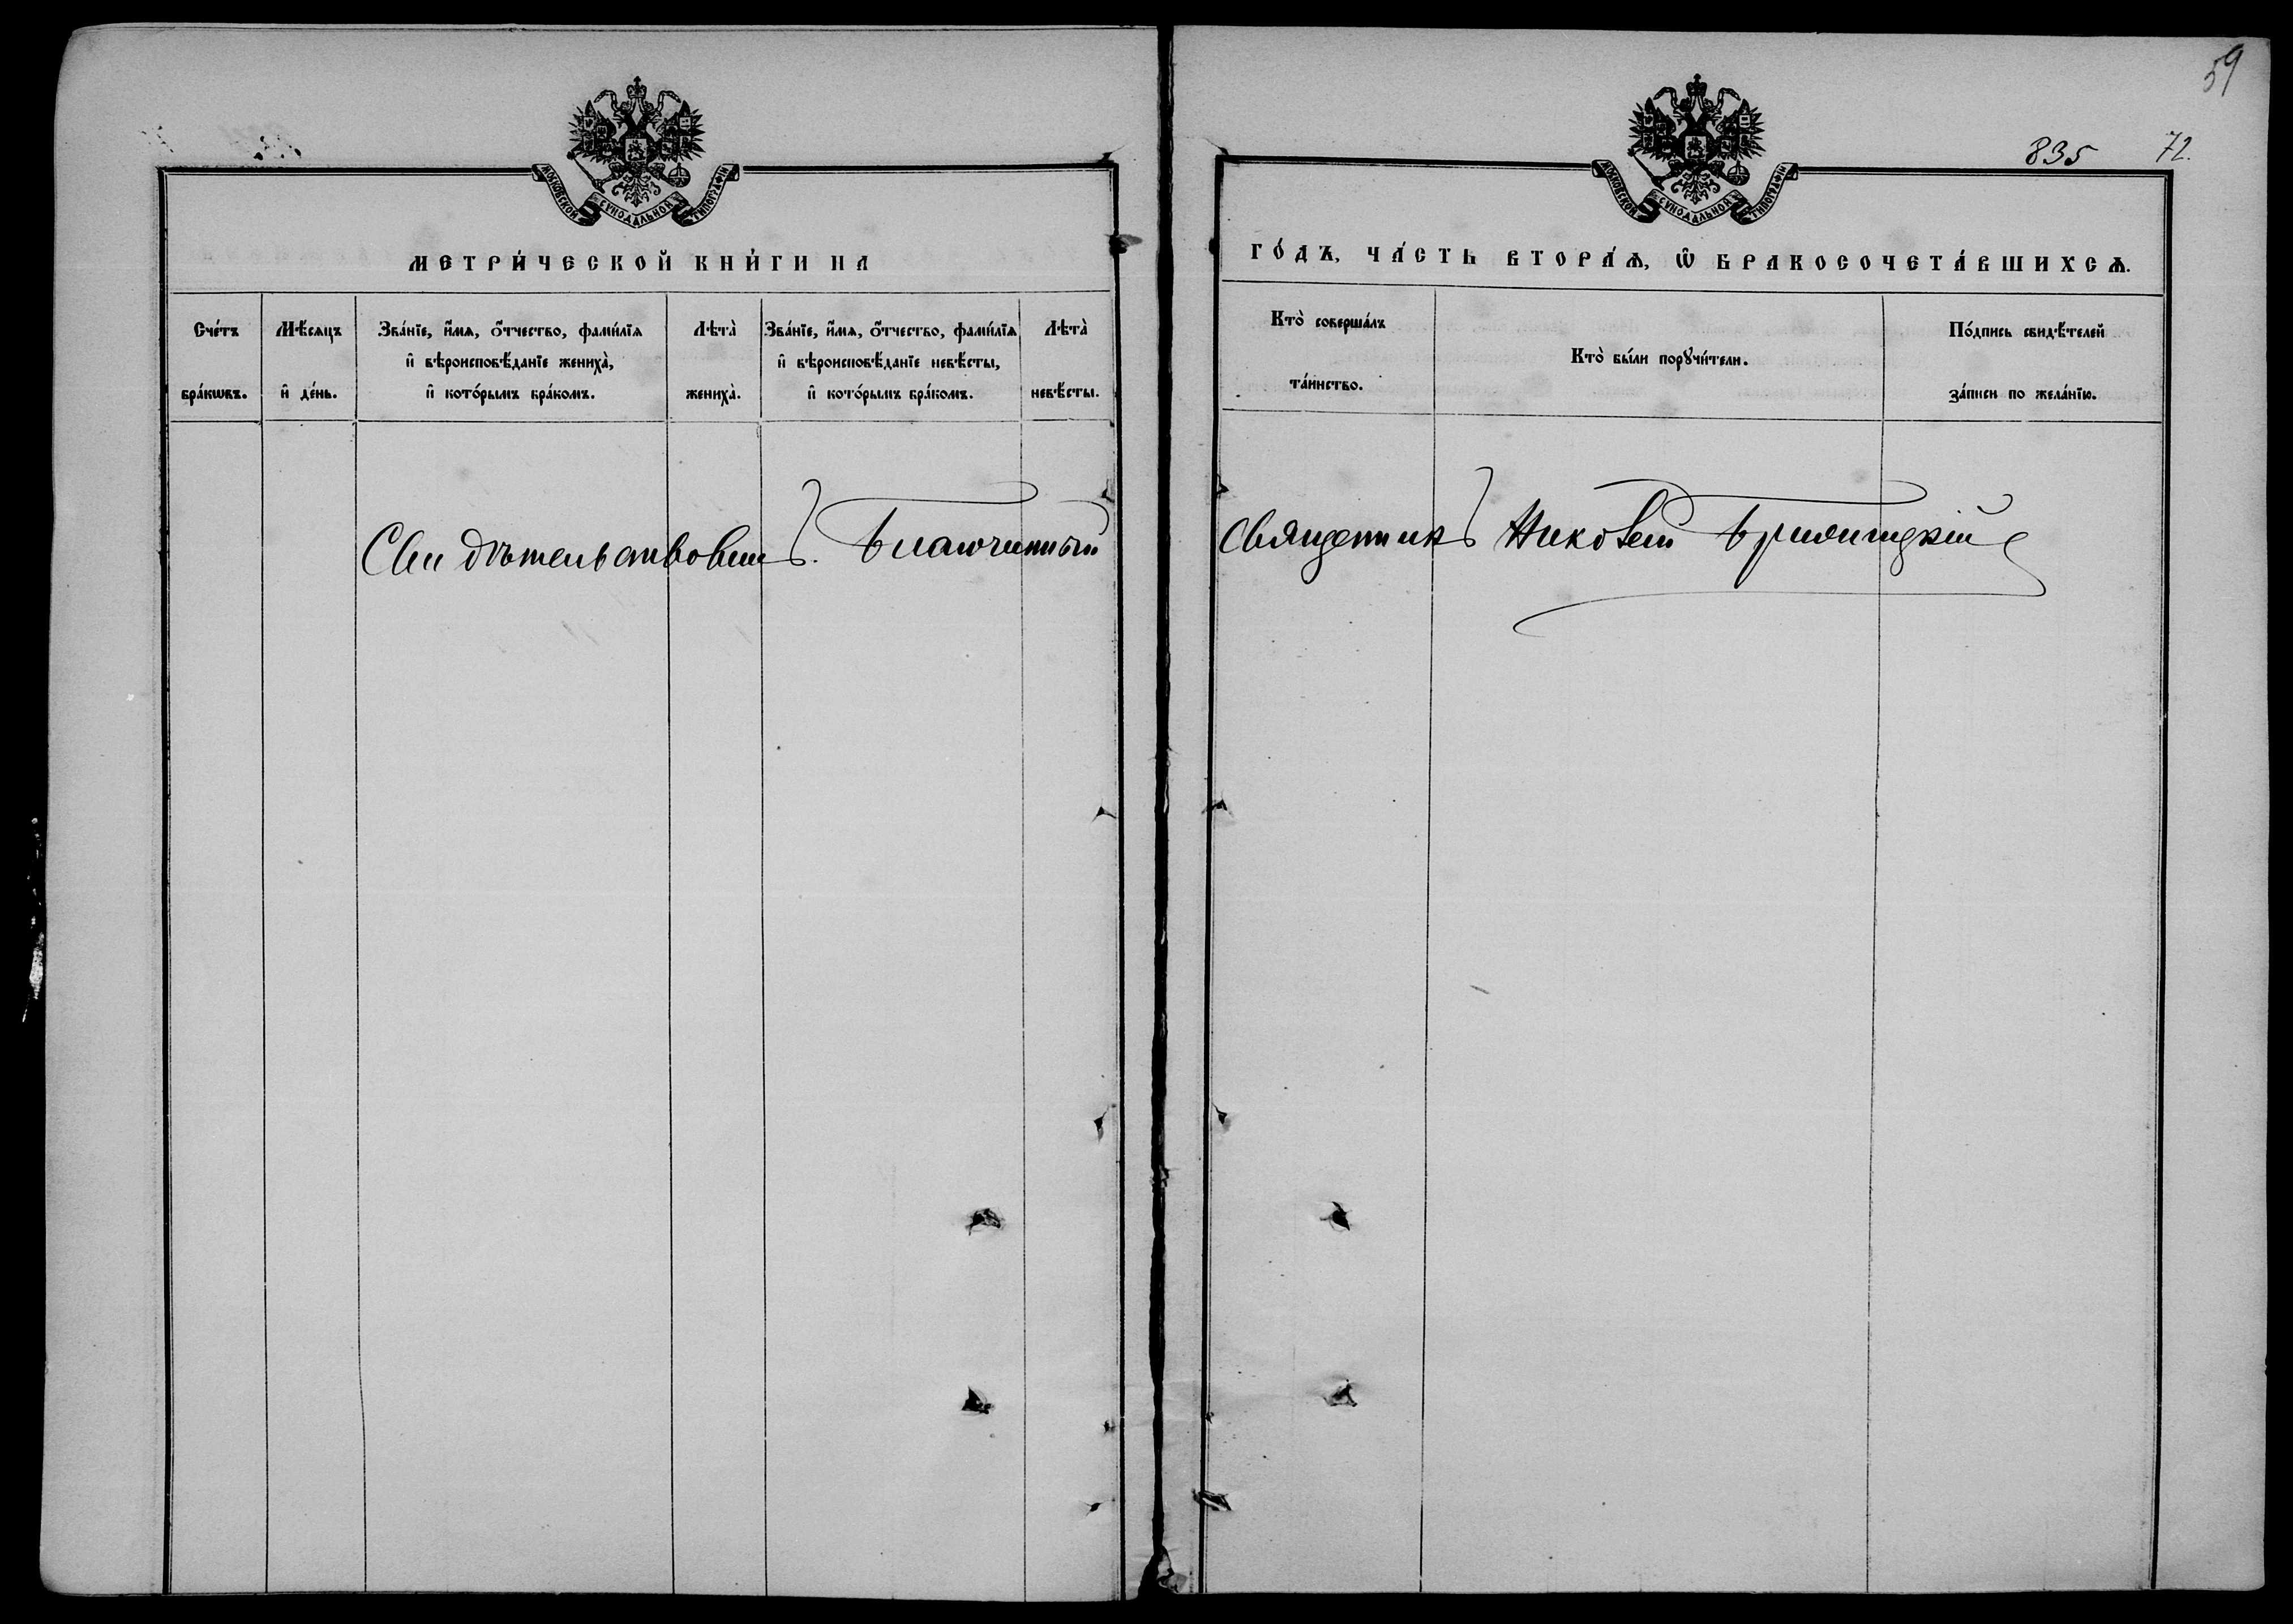 59
835 72.
МОСКОВСКОЙ СУНОДАЛЬНОЙ ТИПОГРАФІИ
МОСКОВСКОЙ СУНОДАЛЬНОЙ ТИПОГРАФІИ
МЕТРИ́ЧЕСКОЙ КНИ́ГИ НА
ГО́ДЪ, ЧА́СТЬ ВТОРА́Ѧ, Ѡ҆ БРАКОСОЧЕТА́ВШИХСѦ.
Сче́тъ
бра́кѡвъ.
Мѣ́сяцъ
и҆ де́нь.
Зва́нїе, и҆́мя, ѻ҆́тчество, фами́лїя
и҆ вѣроисповѣ́данїе жениха̀,
и҆ кото́рымъ бра́комъ.
Лѣта̀
жениха̀.
Зва́нїе, и҆́мя, ѻ҆́тчество, фами́лїя
и҆ вѣроисповѣ́данїе невѣ́сты,
и҆ кото́рымъ бра́комъ.
Лѣта̀
невѣ́сты.
Кто̀ соверша́лъ
та́инство.
Кто̀ бы́ли порꙋчи́тели.
По́дпись свидѣ́телей
за́писи по жела́нїю.
Свидѣтельствовалъ. Благочинный
Священникъ Николай